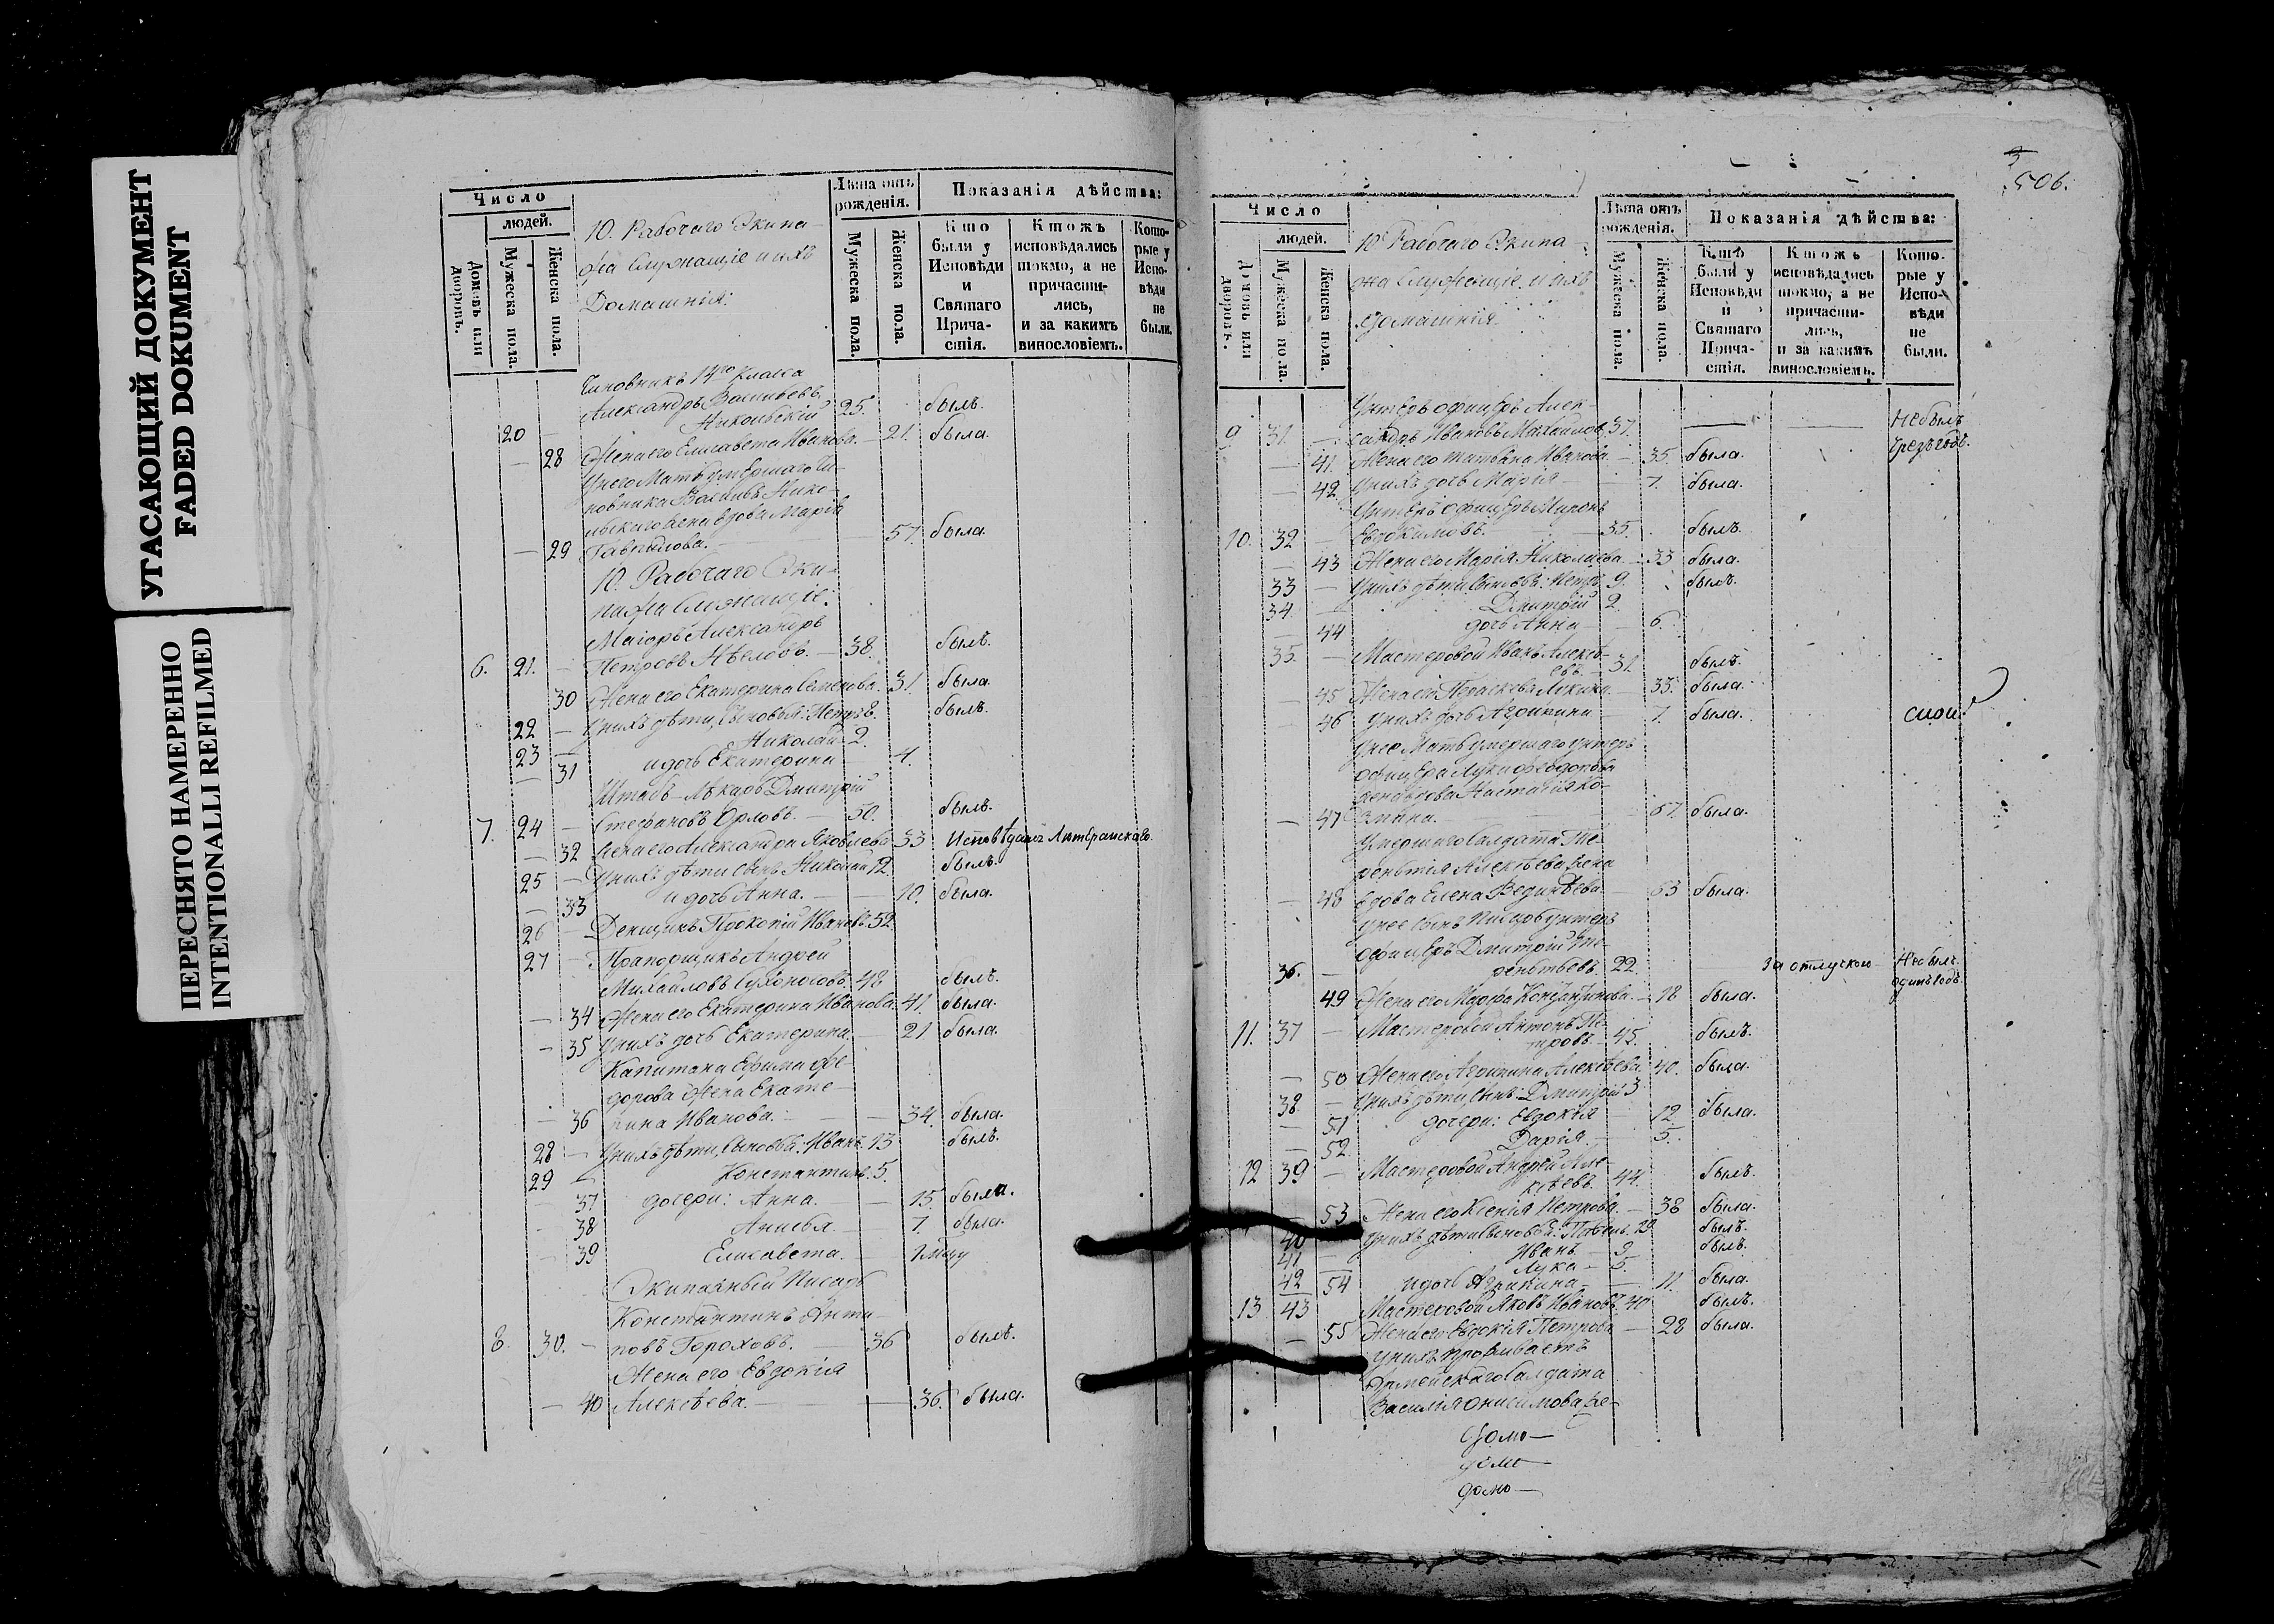 УГАСАЮЩИЙ ДОКУМЕНТ
FADED DOKUMENT
ПЕРЕСНЯТО НАМЕРЕННО
INTENTIONALLI REFILMED
Число
людей.
Домовъ или дворовъ.
Мужеска пола.
Женска пола.
10. Рабочаго Экипа-
жа Служащіе и ихъ
Домашнія:
Лѣта отъ рожденія.
Мужеска пола.
Женска пола.
Показанія дѣйства:
Кто были у Исповѣди и Святаго Причастія.
Ктожъ исповѣдались токмо, а не причастились, и за какимъ винословіемъ.
Которые у Исповѣди не были.
Чиновникъ 14го класса
Александръ Васильевъ
20 — Никольскій 25. былъ.
— 28 Жена его Елисавета Иванова. — 21. была.
У него Мать умершаго Чи-
новника Василья Нико-
льскаго жена вдова Марія
— 29 Гаврилова. — 57. была
10. Рабочаго Эки-
пажа Служащіе:
Маіоръ Александръ
6. 21. — Петровъ Нѣлодъ. — 38. былъ.
30 Жена его Екатерина Семенова. 31. была.
22 — У нихъ дѣти, Сыновья: Петръ 8. былъ.
23 — Николай 2.
— 31 и дочь Екатерина 4.
Штабъ-Лѣкарь Дмитрій
7. 24 — Стефановъ Орловъ. — 50. былъ.
— 32 Жена его Александра Яковлева 33 Исповѣданія Лютеранскаго.
25 — У нихъ дѣти сынъ Николай 12 былъ.
— 33 и дочь Анна. — 10. была.
26 — Денщикъ Прокопій Ивановъ 52
27 — Прапорщикъ Андрей
Михайловъ Сухоносовъ. 48 былъ.
— 34 Жена его Екатерина Иванова. 41. была.
— 35 У нихъ дочь Екатерина. — 21. была.
Капитана Ефима Фе-
дорова жена Екате-
— 36 рина Иванова. — 34. была.
28 — У нихъ дѣти, Сыновья: Иванъ 13 былъ.
29 — Константинъ. 5.
— 37 дочери: Анна. — 15. была.
— 38 Анисья. — 7. была.
— 39 Елисавета. —
Экипажный Писарь
Константинъ Анти-
8. 30. — повъ Гороховъ. — 36 былъ.
Жена его Евдокія
— 40 Алексѣева. — 36. была.
506.
Число
людей.
Домовъ или дворовъ.
Мужеска пола.
Женска пола.
10 Рабочаго Экипа-
жа Служащіе и ихъ
домашнія
Лѣта отъ рожденія.
Мужеска пола.
Женска пола.
Показанія дѣйства:
Ктѣ были у Исповѣди и Святаго Причастія.
Ктожъ исповѣдались токмо, а не причастились, и за какимъ винословіемъ.
Которые у Исповѣди не были.
Унтеръ офицеръ Алек-
9 31. — сандръ Ивановъ Михайловъ 37. — — Небылъ
— 41. Жена его татьяна Иванова. — 35. была.
— 42 У нихъ дочь Марія — 7. была.
Унтеръ Офицеръ Миронъ
10. 32 — Евдокимовъ. — 35. былъ.
— 43 Жена его Марія Николаева. — 33 была.
33 — У нихъ дѣти, Сыновья: Петръ 9. былъ.
34. — Дмитрій 2.
— 44 дочь Анна — 6.
35. — Мастеровой Иванъ Алексѣ-
евъ. 31. былъ.
— 45 Жена его Параскева Лукина. — 35. была.
— 46 У нихъ дочь Агрипина — 7. была.
У нее Мать умершаго унтеръ
офицера Луки Ѳеодорова
жена вдова Настасія Ко-
— 47 змина. — 67. была.
Умершаго Салдата Те-
рентія Алексѣева жена
— 48 вдова Елена Вединѣева. — 63 была.
У нее Сынъ Писарь Унтеръ
офицеръ Дмитрій Те-
36. — рентьевъ. 22. за отлучкою Небылъ
одинъ годъ.
49 Жена его Марѳа Константинова. — 18 была.
11. 37 — Мастеровой Антонъ Пе-
тровъ. 45. былъ.
— 50 Жена его Агрипина Алексѣева. 40. была.
38 — У нихъ дѣти, Сынъ Дмитрій 3
— 51 дочери: Евдокія 12. была.
— 52. Дарія. — 5.
12 39 — Мастеровой Андрей Але-
ксѣевъ. 44. былъ.
53 Жена его Ксенія Петрова. — 38 была.
40 У нихъ дѣти Сыновья: Павелъ. былъ.
41 — Иванъ — 9. былъ.
42 Лука — 5.
54 и дочь Агрипина — 11. была.
13 43 Мастеровой Яковъ Ивановъ. 40 былъ.
— 55 Жена его Евдокія Петрова — 28 была.
У нихъ проживаетъ
Армейскаго Салдата
Василія Онисимова же-